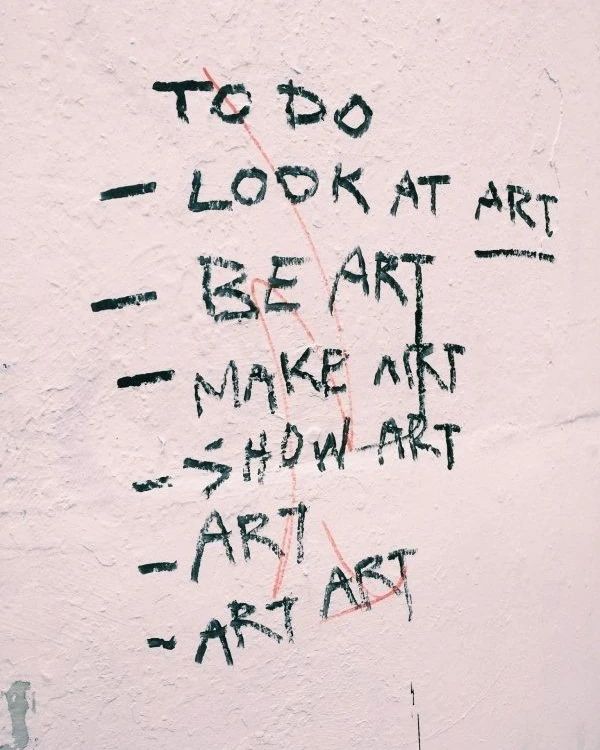 TO DO
- LOOK AT ART
- BE ART
- MAKE ART
- SHOW ART
- ART
- ART ART